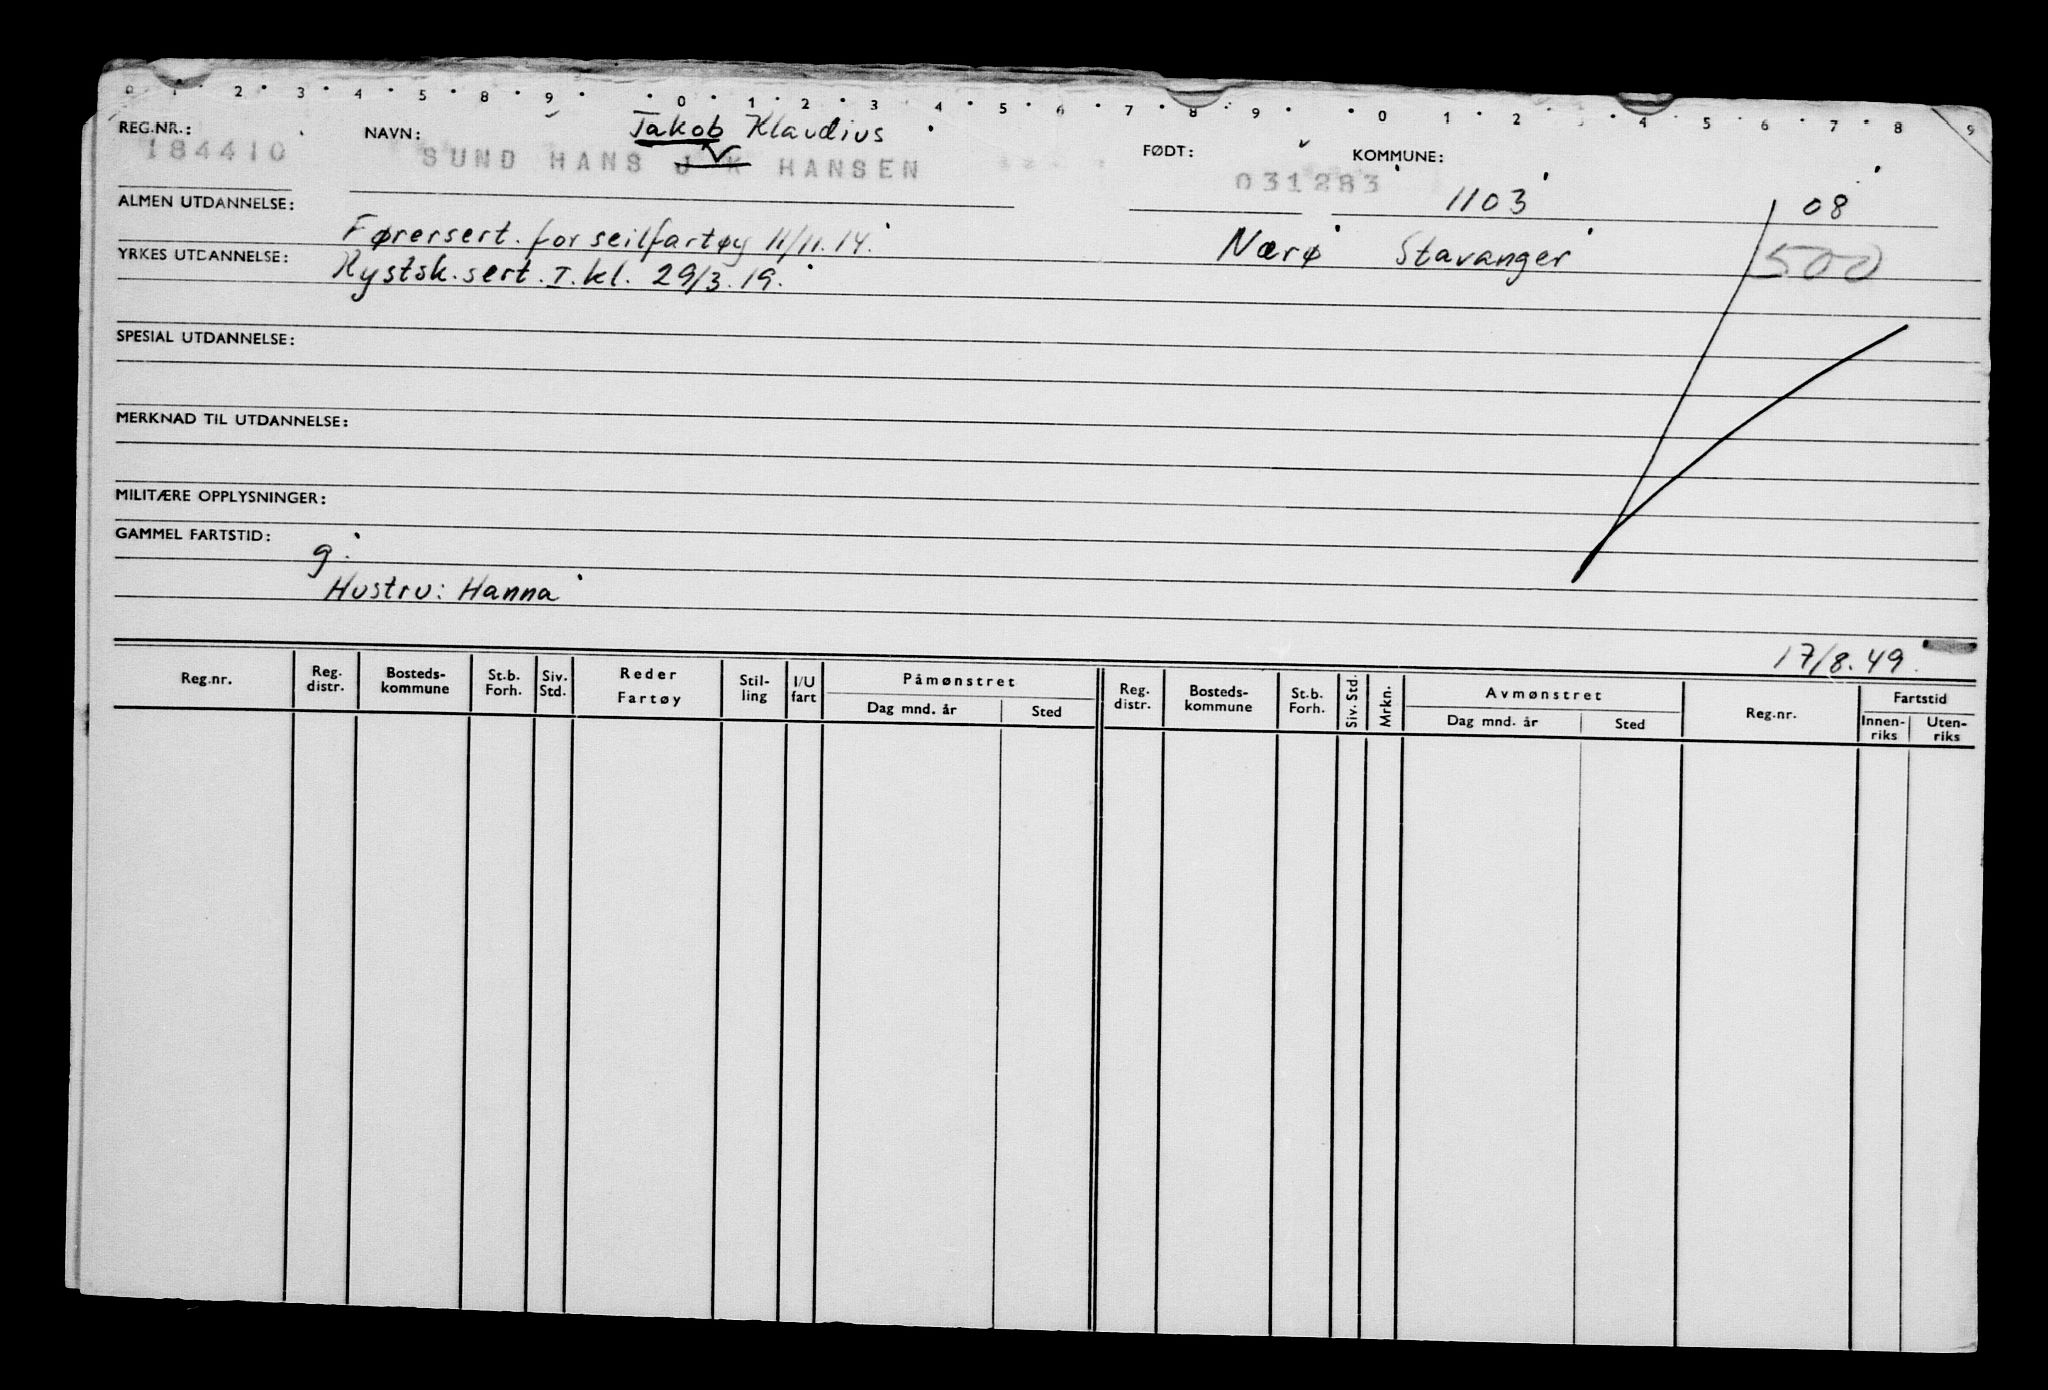 0 1 2 3 4 5 8 9 0 1 2 3 4 5 6 7 8 9 0 1 2 3 4 5 6 7 8 9
REG.NR.: NAVN: Jakob Klaudius FØDT: KOMMUNE:
184410 SUND HANS J K HANSEN 031283 1103 08
ALMEN UTDANNELSE:
Førersert. for seilfartøy 11/11.14. Nærø Stavanger 500
YRKES UTDANNELSE: Kystsk.sert. I.kl. 29/3.19.
SPESIAL UTDANNELSE:
MERKNAD TIL UTDANNELSE:
MILITÆRE OPPLYSNINGER:
GAMMEL FARTSTID:
g.
Hustru: Hanna
17/8.49.
Reg.nr. Reg. distr. Bosteds- kommune St.b. Forh. Siv. Std. Reder Fartøy Stil- ling I/U fart Påmønstret Dag mnd. år Sted Reg. distr. Bosteds- kommune St.b. Forh. Siv. Std. Mrkn. Avmønstret Dag mnd. år Sted Reg.nr. Fartstid Innen- riks Uten- riks